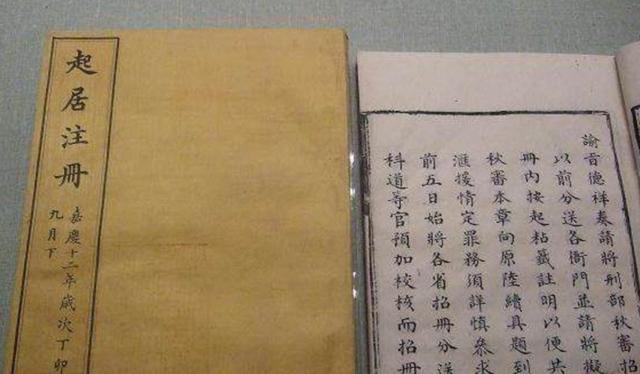 起居注冊
嘉慶十二年歲次丁卯
九月下
諭旨德祥奏請將刑部秋審招
以前分送各衙門並請將擬
冊内按起粘籤註明以便共
秋審本章向原陸續具題到
滙援情定罪務須詳慎叅求
前五日始將各省招冊分送
科道等官預加校核而招冊